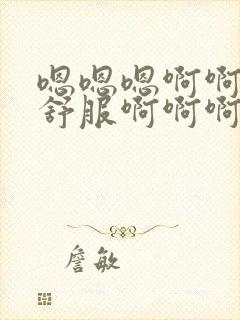 嗯嗯嗯啊啊
舒服啊啊啊
詹敏